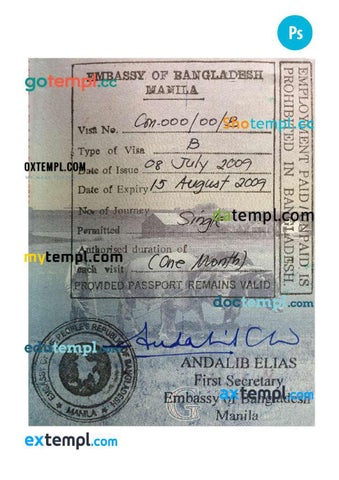 Ps
gotempl.cc
EMBASSY OF BANGLADESH
MANILA
Visa No. Con.000/00/
shotempl.cc
Type of Visa B
OXTEMPL.COM
Date of Issue 08 July 2009
Date of Expiry 15 August 2009
No. of Journey Single
Permitted
templ.com
Authorised duration of
mytempl.com
each visit (One Month)
PROVIDED PASSPORT REMAINS VALID
EMPLOYMENT PAID/UNPAID IS
PROHIBITED IN BANGLADESH
doctempl.com
templ.com
EMBASSY OF THE PEOPLE'S REPUBLIC OF BANGLADESH
MANILA
ANDALIB ELIAS
First Secretary
axtempl.com
Embassy of Bangladesh
Manila
extempl.com